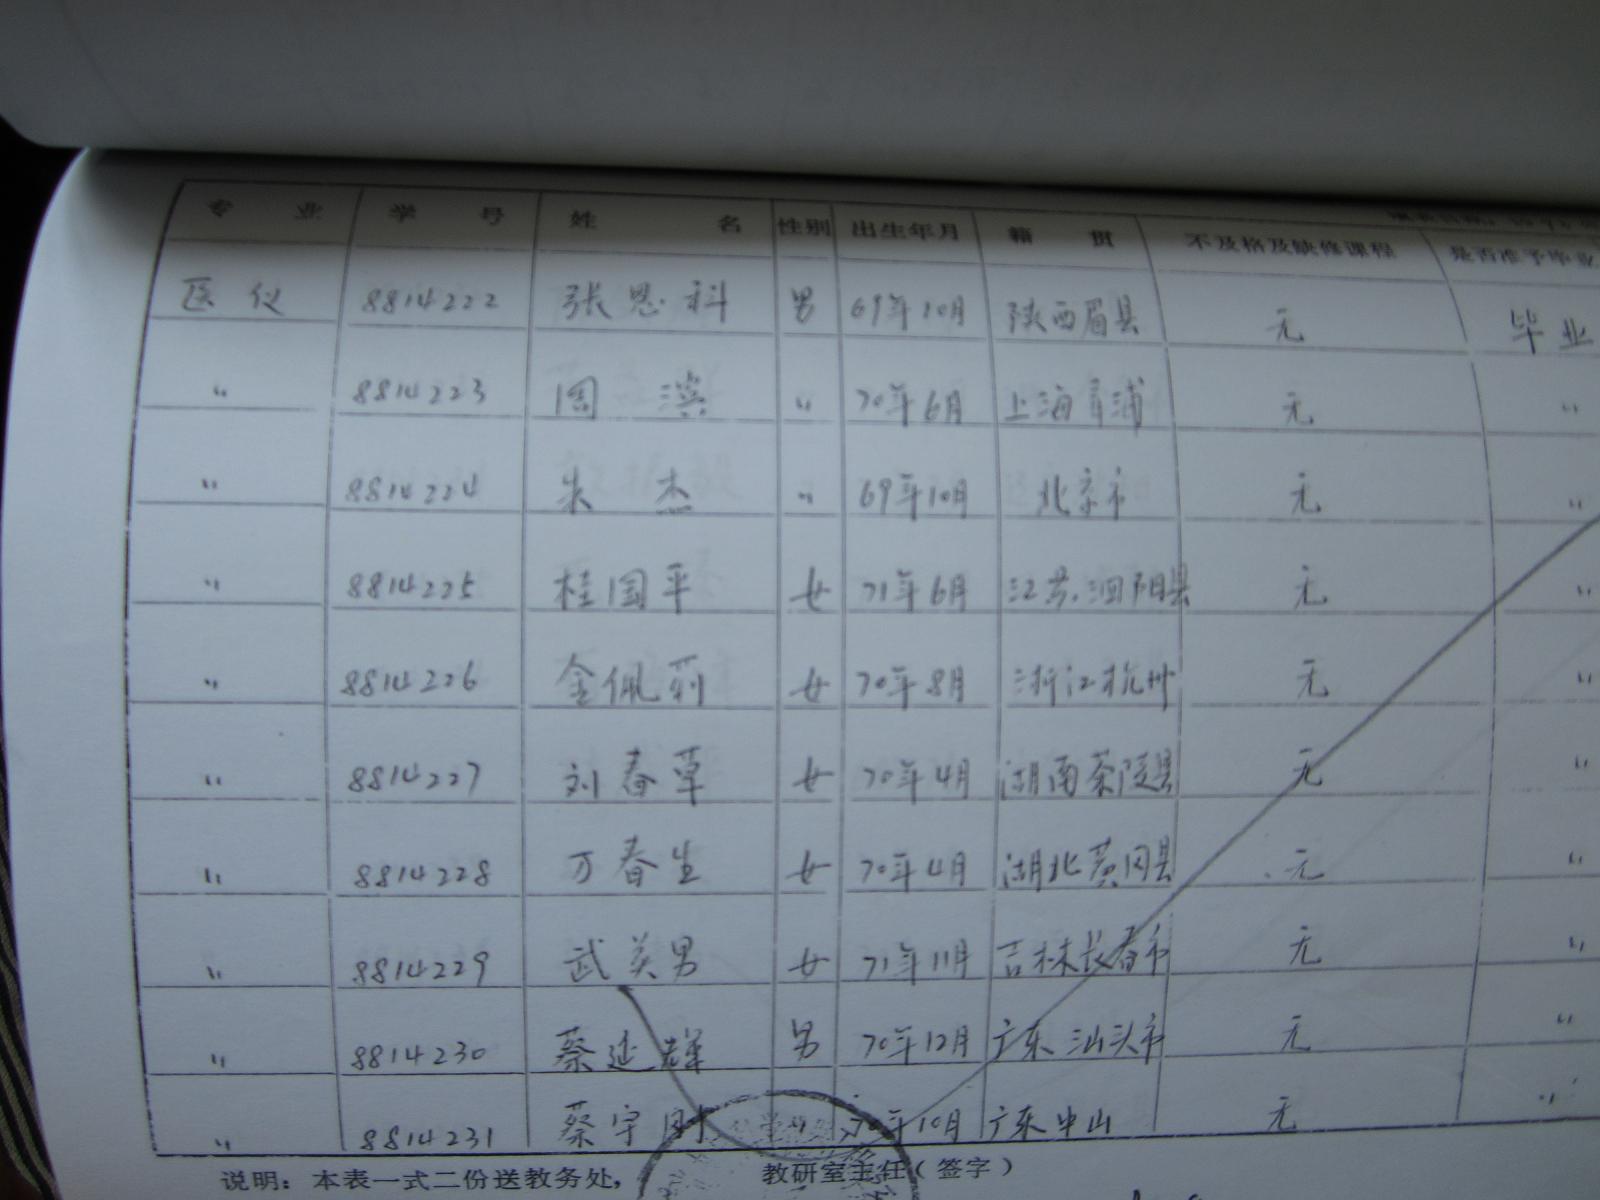 专 业 学 号 姓 名 性别 出生年月 籍 贯 不及格及缺修课程 是否准予毕业
医仪 8814222 张思科 男 69年10月 陕西眉县 无 毕业
〃 8814223 周 滨 〃 70年6月 上海青浦 无 〃
〃 8814224 朱 杰 〃 69年10月 北京市 无 〃
〃 8814225 桂国平 女 71年6月 江苏泗阳县 无 〃
〃 8814226 金佩莉 女 70年8月 浙江杭州 无 〃
〃 8814227 刘春草 女 70年4月 湖南茶陵县 无 〃
〃 8814228 万春生 女 70年4月 湖北黄冈县 无 〃
〃 8814229 武美男 女 71年11月 吉林长春市 无 〃
〃 8814230 蔡延辉 男 70年12月 广东汕头市 无 〃
〃 8814231 蔡宇刚 〃 70年10月 广东中山 无 〃
说明：本表一式二份送教务处， 教研室主任（签字）